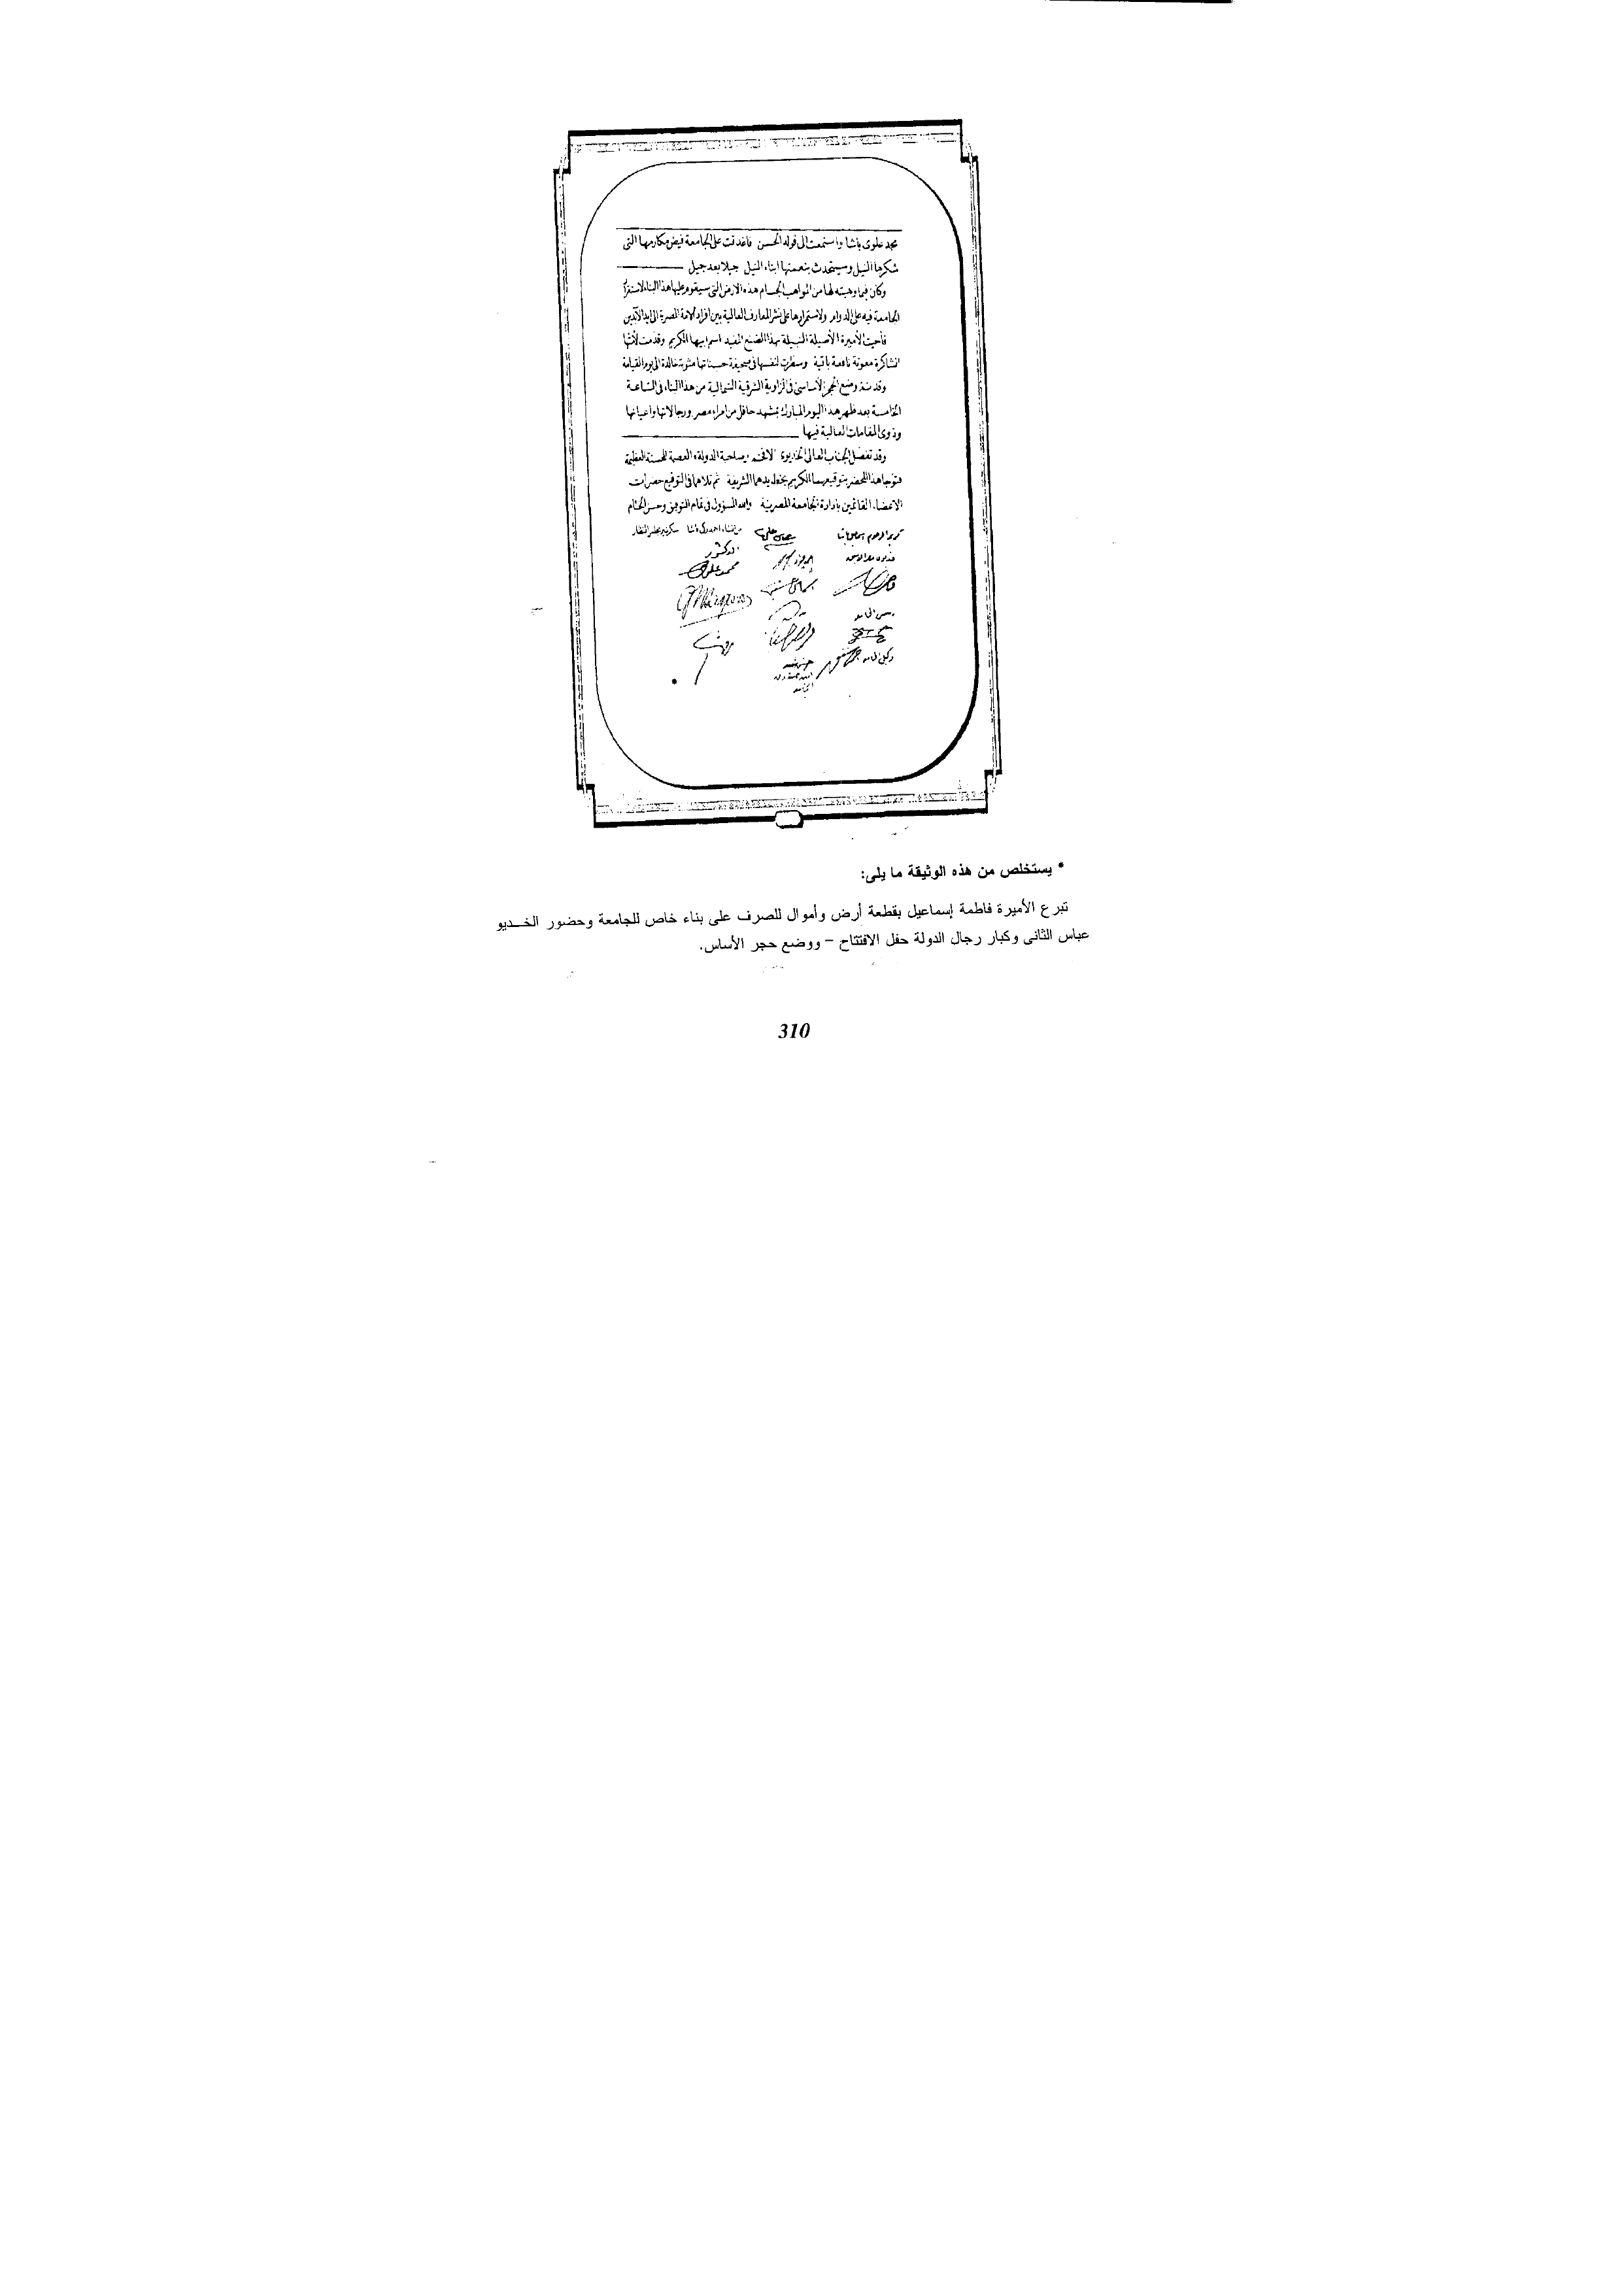 محمد علوى باشا واستمعت الى قوله الحسن فاغدقت على الجامعة فيض مكارمها التى
شكرها النيل وسيتحدث بنعمتها ابناء النيل جيلا بعد جيل
وكان فيما وهبته لها من المواهب الجسام هذه الارض التى سيقوم عليها هذا البناء لاستقرار
الجامعة فيه على الدوام ولاستمرارها على نشر المعارف العالية بين افراد الامة المصرية الى ابد الآبدين
فأحيت الأميرة الأصيلة النبيلة بهذا الصنع المفيد اسم ابيها الكريم وقدمت لأمتها
الشاكرة معونة نافعة باقية وسطرت لنفسها فى صحيفة حسناتها مثوبة خالدة الى يوم القيامة
وقد تم وضع الحجر الأساسى فى الزاوية الشرقية الشمالية من هذا البناء فى الساعة
الخامسة بعد ظهر هذا اليوم المبارك بمشهد حافل من امراء مصر ورجالاتها واعيانها
وذوى المقامات العالية فيها
وقد تفضل الجناب العالى الخديوى الافخم وصاحبة الدولة والعصمة المحسنة العظيمة
فتوجا هذا المحضر بتوقيعهما الكريم بخط يدهما الشريفة ثم تلاهما فى التوقيع حضرات
الاعضاء القائمين بادارة الجامعة المصرية والله المسؤول فى تمام التوفيق وحسن الختام
كريمة المرحوم اسماعيل باشا
من انشاء احمد زكى باشا سكرتير مجلس النظار
الدكتور
محمد علوى
وكيل الجامعة
• يستخلص من هذه الوثيقة ما يلى:
تبرع الأميرة فاطمة إسماعيل بقطعة أرض وأموال للصرف على بناء خاص للجامعة وحضور الخديو
عباس الثانى وكبار رجال الدولة حفل الافتتاح – ووضع حجر الأساس.
310